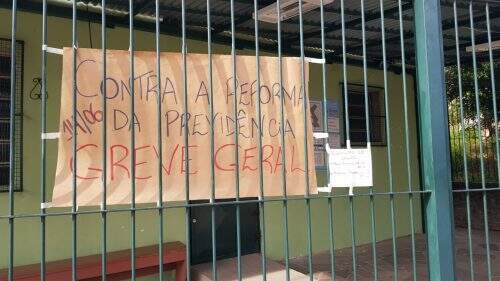 CONTRA A REFORMA
14/06 DA PREVIDÊNCIA
GREVE GERAL